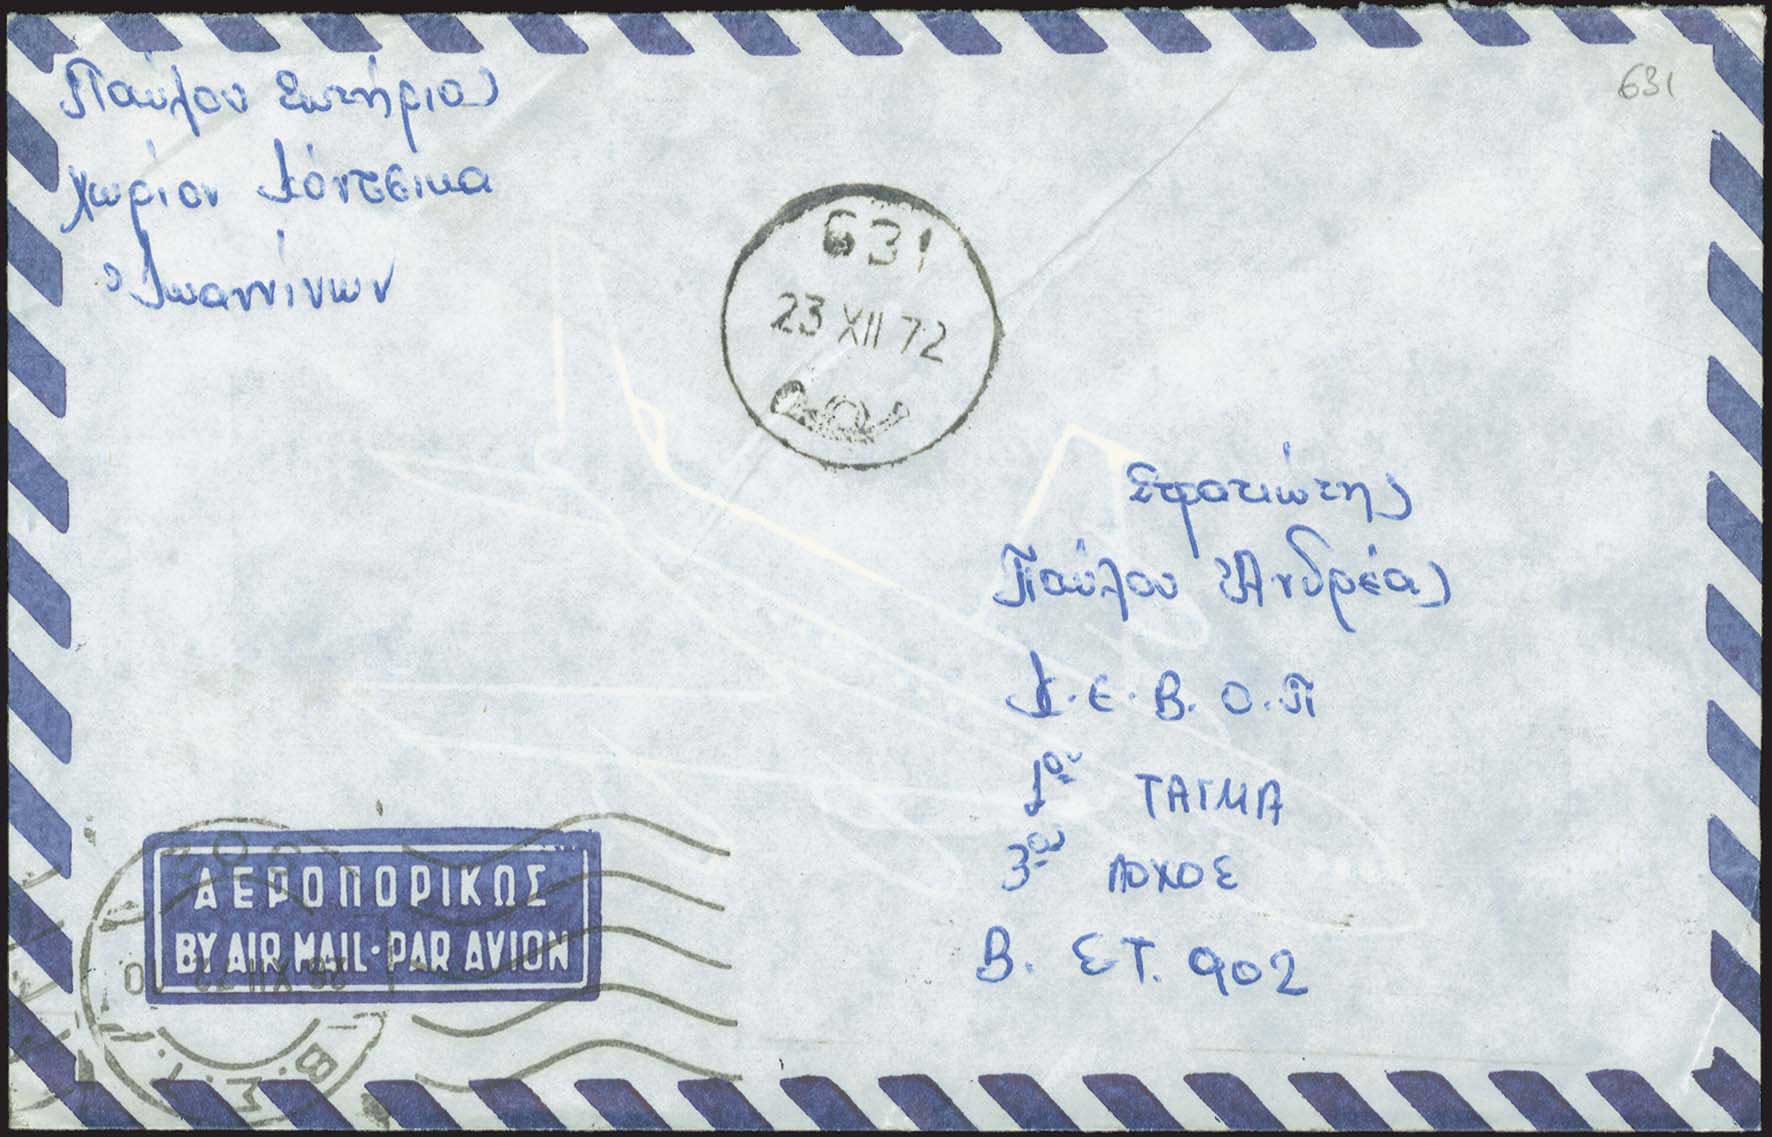 Παύλου Σωτήριος
χωρίον Κόντσικα
Ἰωαννίνων
631
631
23 XII 72
Στρατιώτης
Παύλου Ἀνδρέας
Κ.Ε.Β.Ο.Π
1ον ΤΑΓΜΑ
3ος ΛΟΧΟΣ
Β. ΣΤ. 902
ΑΕΡΟΠΟΡΙΚΩΣ
BY AIR MAIL·PAR AVION